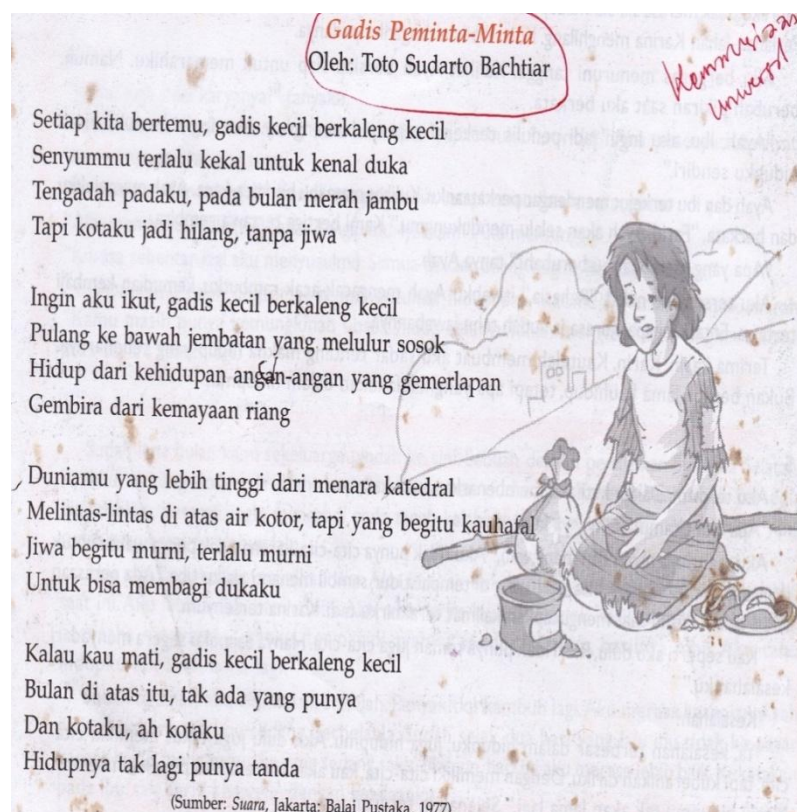 Gadis Peminta-Minta
Oleh: Toto Sudarto Bachtiar
Setiap kita bertemu, gadis kecil berkaleng kecil
Senyummu terlalu kekal untuk kenal duka
Tengadah padaku, pada bulan merah jambu
Tapi kotaku jadi hilang, tanpa jiwa
Ingin aku ikut, gadis kecil berkaleng kecil
Pulang ke bawah jembatan yang melulur sosok
Hidup dari kehidupan angan-angan yang gemerlapan
Gembira dari kemayaan riang
Duniamu yang lebih tinggi dari menara katedral
Melintas-lintas di atas air kotor, tapi yang begitu kauhafal
Jiwa begitu murni, terlalu murni
Untuk bisa membagi dukaku
Kalau kau mati, gadis kecil berkaleng kecil
Bulan di atas itu, tak ada yang punya
Dan kotaku, ah kotaku
Hidupnya tak lagi punya tanda
(Sumber: Suara, Jakarta: Balai Pustaka, 1977)